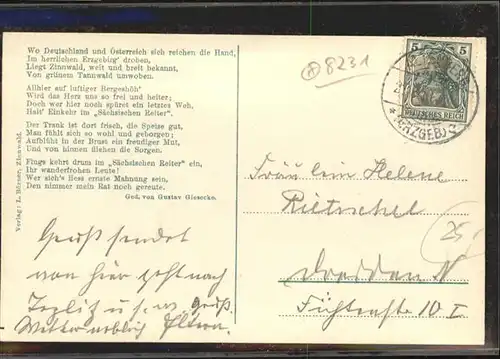 Wo Deutschland und Österreich sich reichen die Hand,
Im herrlichen Erzgebirg' droben,
Liegt Zinnwald, weit und breit bekannt,
Von grünem Tannwald umwoben.
Allhier auf luftiger Bergeshöh'
Wird das Herz uns so frei und heiter;
Doch wer hier noch spüret ein letztes Weh,
Halt' Einkehr im „Sächsischen Reiter".
Der Trank ist dort frisch, die Speise gut,
Man fühlt sich so wohl und geborgen;
Aufblüht in der Brust ein freudiger Mut,
Und von hinnen fliehen die Sorgen.
Flugs kehrt drum im „Sächsischen Reiter" ein,
Ihr wanderfrohen Leute!
Wer sich's liess ernste Mahnung sein,
Den nimmer mein Rat noch gereute.
Ged. von Gustav Giesecke.
Verlag: L. Börner, Zinnwald.
A 8231
5 5
DEUTSCHES REICH
(ERZGEB.)
Fräulein Helene
Rietschel
Dresden N
Fichtenstr 10 I
25
Gruß sendet
von hier geht nach
u. s. w. Gruß.
Eltern.